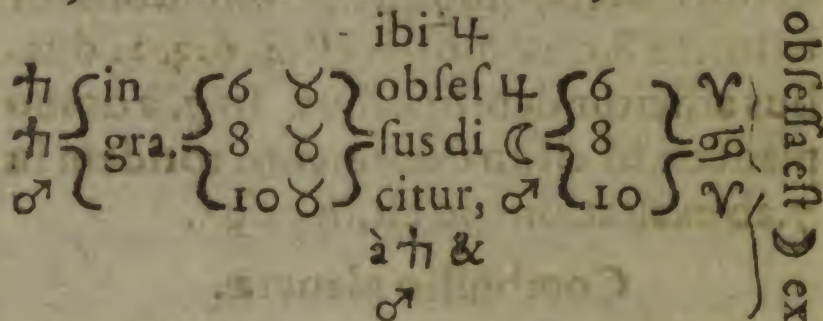 ibi ♃
♄ { in { 6 ♉ } obſeſ ♃ { 6 } ♈
♄ { gra. { 8 ♉ } ſus di ☾ { 8 } ♋
♂ { { 10 ♉ } citur, ♂ { 10 } ♈
à ♄ &
♂
obſeſſa eſt ☽ ex